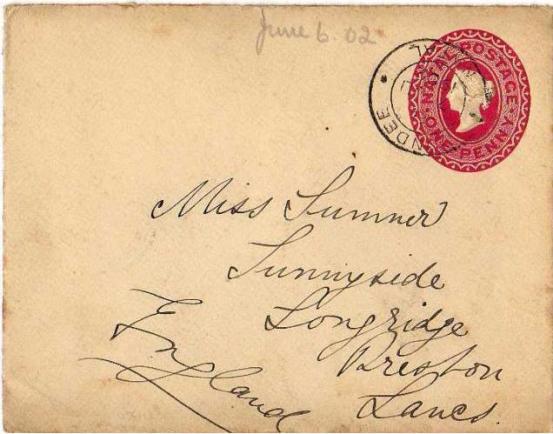 June 6. 02
NATAL POSTAGE
ONE PENNY
DUNDEE
Miss Sumner
Sunnyside
Longridge
Preston
Lancs.
England